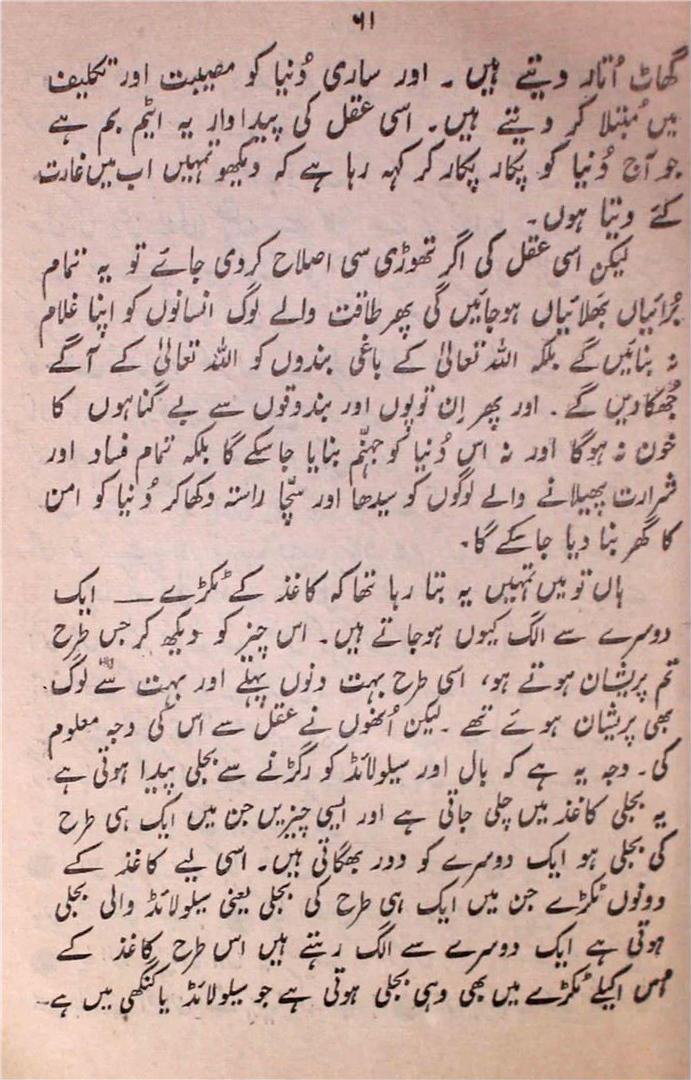 ۶۱
گھاٹ اُتار دیتے ہیں ۔ اور ساری دُنیا کو مصیبت اور تکلیف
میں مُبتلا کر دیتے ہیں۔ اسی عقل کی پیداوار یہ ایٹم بم ہے
جو آج دُنیا کو پکار پکار کر کہہ رہا ہے کہ دیکھو تمہیں اب میں غارت
کئے دیتا ہوں۔
لیکن اسی عقل کی اگر تھوڑی سی اصلاح کر دی جائے تو یہ تمام
بُرائیاں بھلائیاں ہو جائیں گی پھر طاقت والے لوگ انسانوں کو اپنا غلام
نہ بنائیں گے بلکہ اللہ تعالیٰ کے باغی بندوں کو اللہ تعالیٰ کے آگے
جُھکا دیں گے ۔ اور پھر اِن توپوں اور بندوقوں سے بے گناہوں کا
خون نہ ہو گا اور نہ اس دُنیا کو جہنّم بنایا جا سکے گا بلکہ تمام فساد اور
شرارت پھیلانے والے لوگوں کو سیدھا اور سچّا راستہ دکھا کر دُنیا کو امن
کا گھر بنا دیا جا سکے گا۔
ہاں تو میں تمہیں یہ بتا رہا تھا کہ کاغذ کے ٹکڑے ــــ ایک
دوسرے سے الگ کیوں ہو جاتے ہیں۔ اس چیز کو دیکھ کر جس طرح
تم پریشان ہوتے ہو، اسی طرح بہت دنوں پہلے اور بہت سے لوگ
بھی پریشان ہوئے تھے ۔ لیکن اُنھوں نے عقل سے اس کی وجہ معلوم
کی۔ وجہ یہ ہے کہ بال اور سیلولائڈ کو رگڑنے سے بجلی پیدا ہوتی ہے
یہ بجلی کاغذ میں چلی جاتی ہے اور ایسی چیزیں جن میں ایک ہی طرح
کی بجلی ہو ایک دوسرے کو دور بھگاتی ہیں۔ اسی لیے کاغذ کے
دونوں ٹکڑے جن میں ایک ہی طرح کی بجلی یعنی سیلولائڈ والی بجلی
ہوتی ہے ایک دوسرے سے الگ رہتے ہیں اس طرح کاغذ کے
اس اکیلے ٹکڑے میں بھی وہی بجلی ہوتی ہے جو سیلولائڈ یا کنگھی میں ہے۔